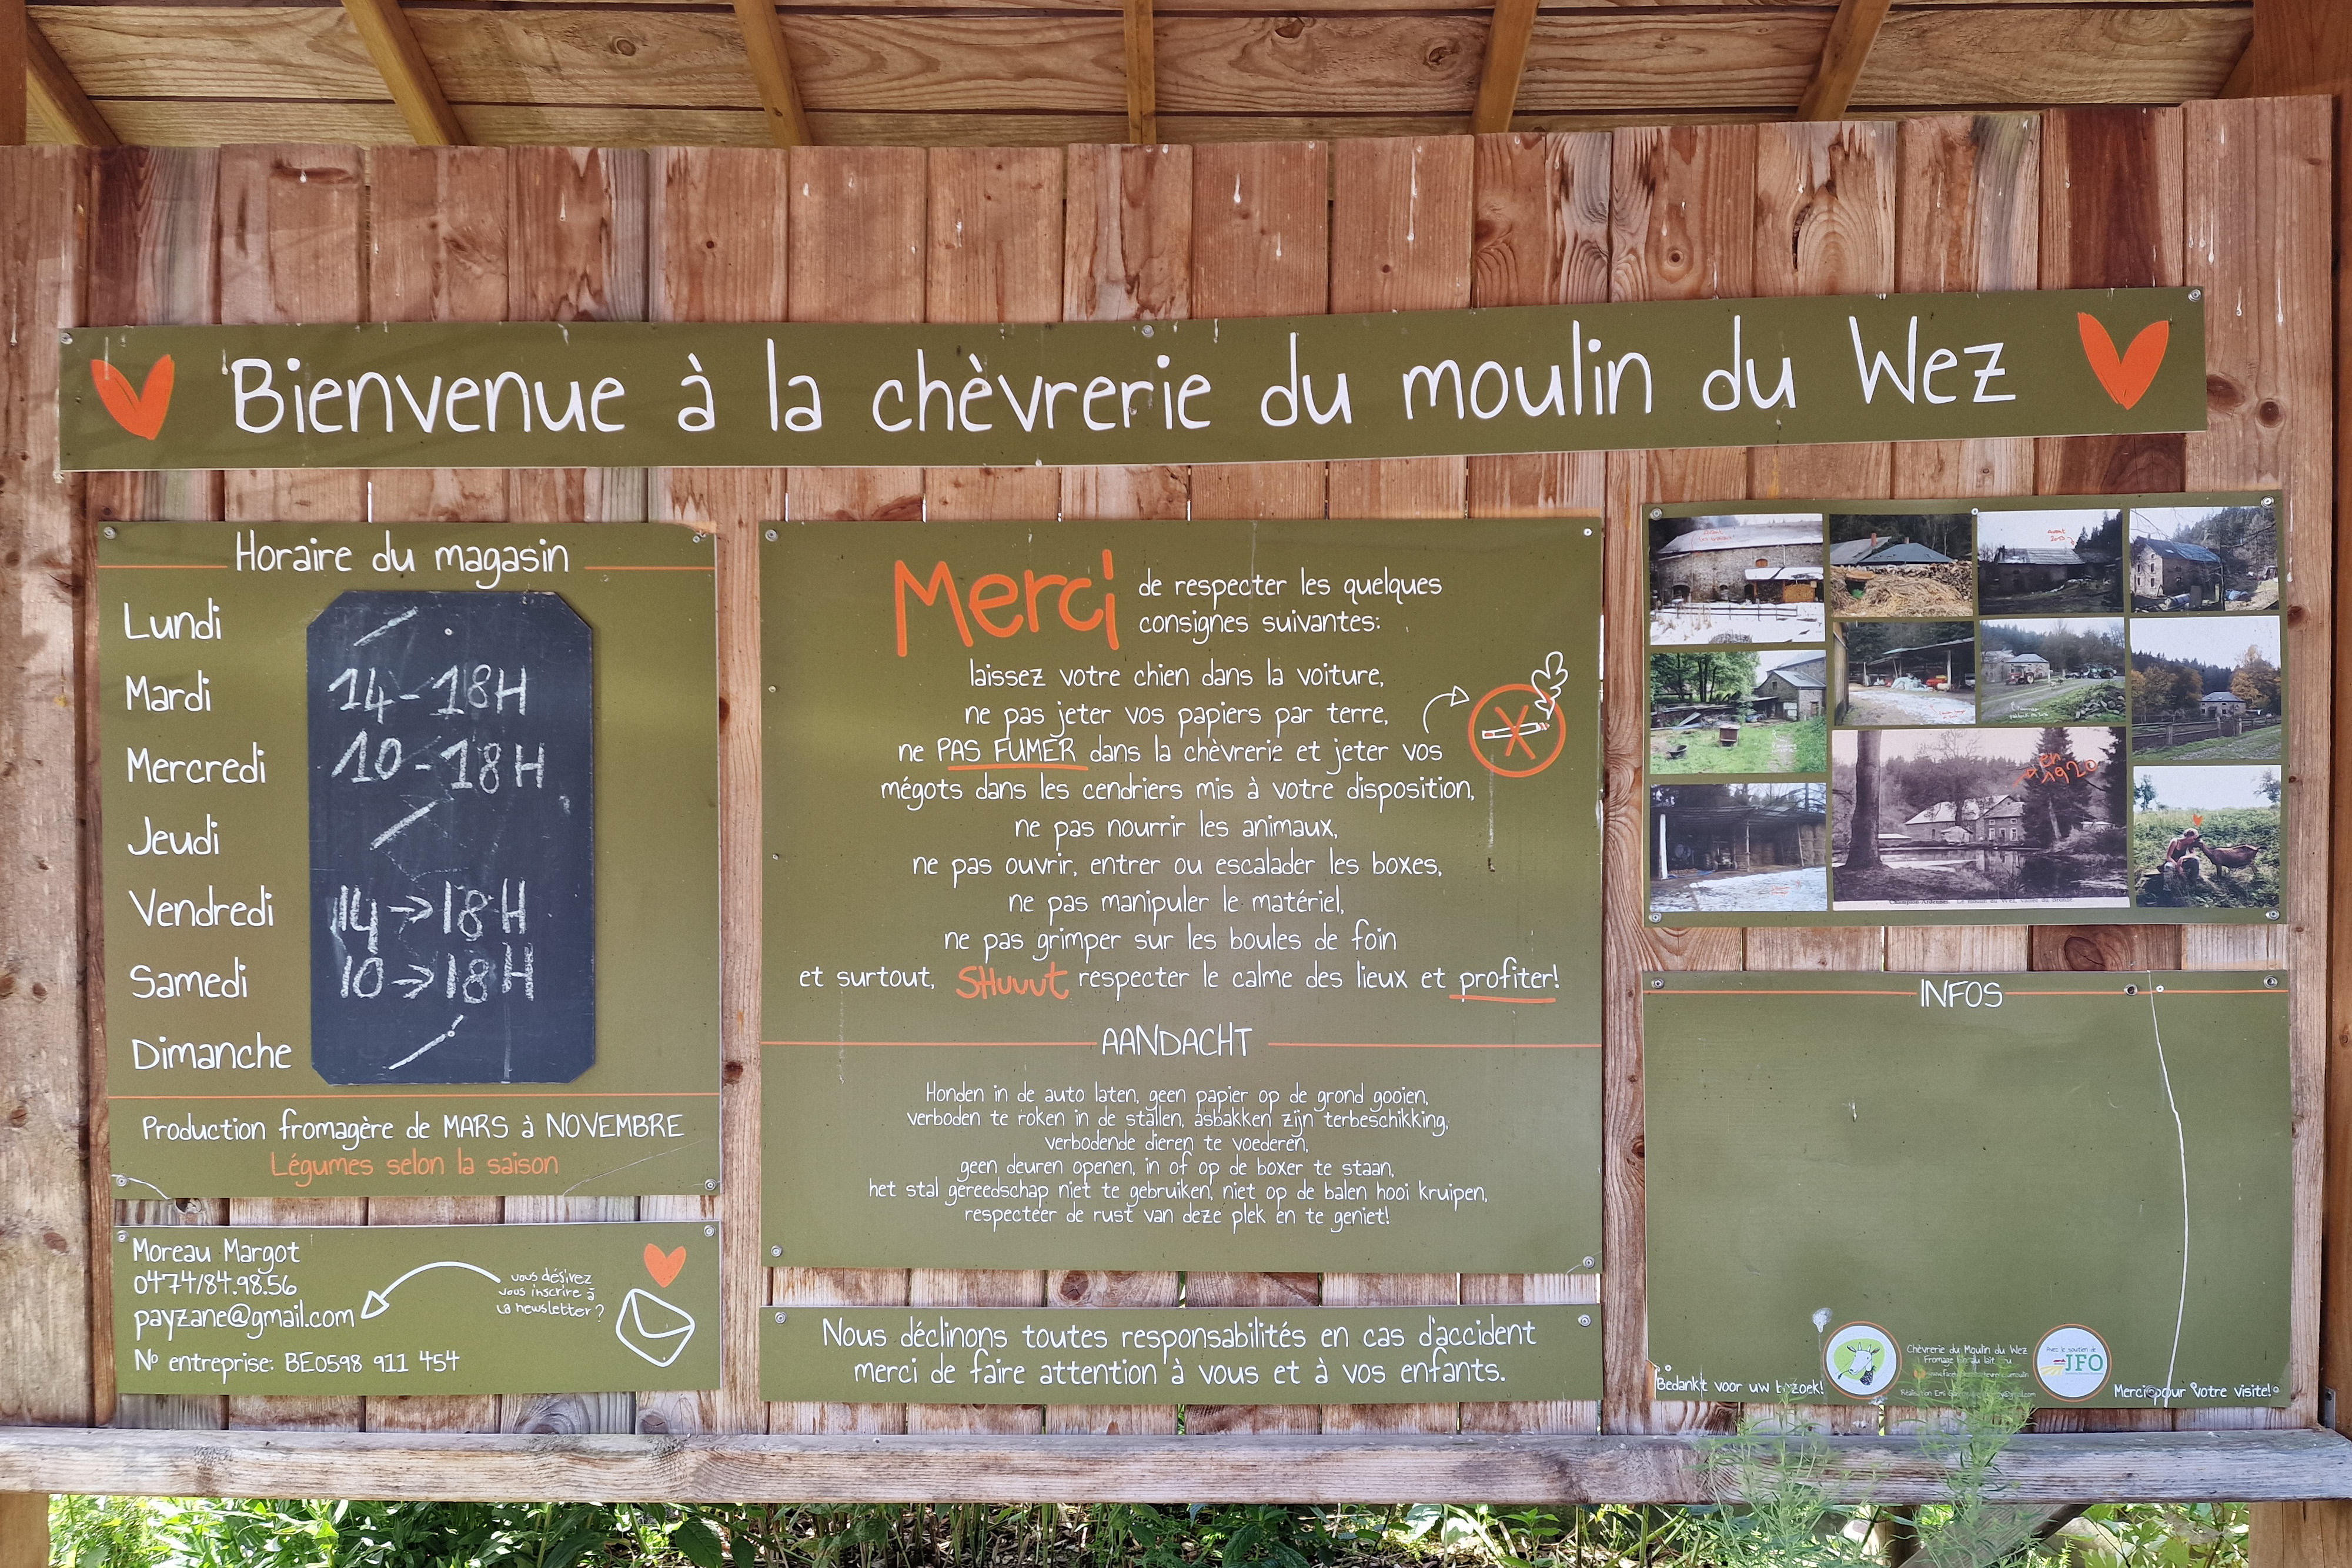 Bienvenue à la chèvrerie du moulin du Wez
Horaire du magasin
Lundi /
Mardi 14-18H
Mercredi 10-18H
Jeudi /
Vendredi 14→18H
Samedi 10→18H
Dimanche /
Production fromagère de MARS à NOVEMBRE
Légumes selon la saison
Moreau Margot
0474/84.98.56
payzane@gmail.com
N° entreprise: BE0598 911 454
vous désirez
vous inscrire à
la newsletter ?
Merci de respecter les quelques
consignes suivantes:
laissez votre chien dans la voiture,
ne pas jeter vos papiers par terre,
ne PAS FUMER dans la chèvrerie et jeter vos
mégots dans les cendriers mis à votre disposition,
ne pas nourrir les animaux,
ne pas ouvrir, entrer ou escalader les boxes,
ne pas manipuler le matériel,
ne pas grimper sur les boules de foin
et surtout, SHuuut respecter le calme des lieux et profiter!
AANDACHT
Honden in de auto laten, geen papier op de grond gooien,
verboden te roken in de stallen, asbakken zijn terbeschikking,
verbodende dieren te voederen,
geen deuren openen, in of op de boxer te staan,
het stal gereedschap niet te gebruiken, niet op de balen hooi kruipen,
respecteer de rust van deze plek en te geniet!
Nous déclinons toutes responsabilités en cas d'accident
merci de faire attention à vous et à vos enfants.
en
1920
INFOS
Bedankt voor uw bezoek!
Chèvrerie du Moulin du Wez
Avec le soutien de
JFO
Merci pour votre visite!